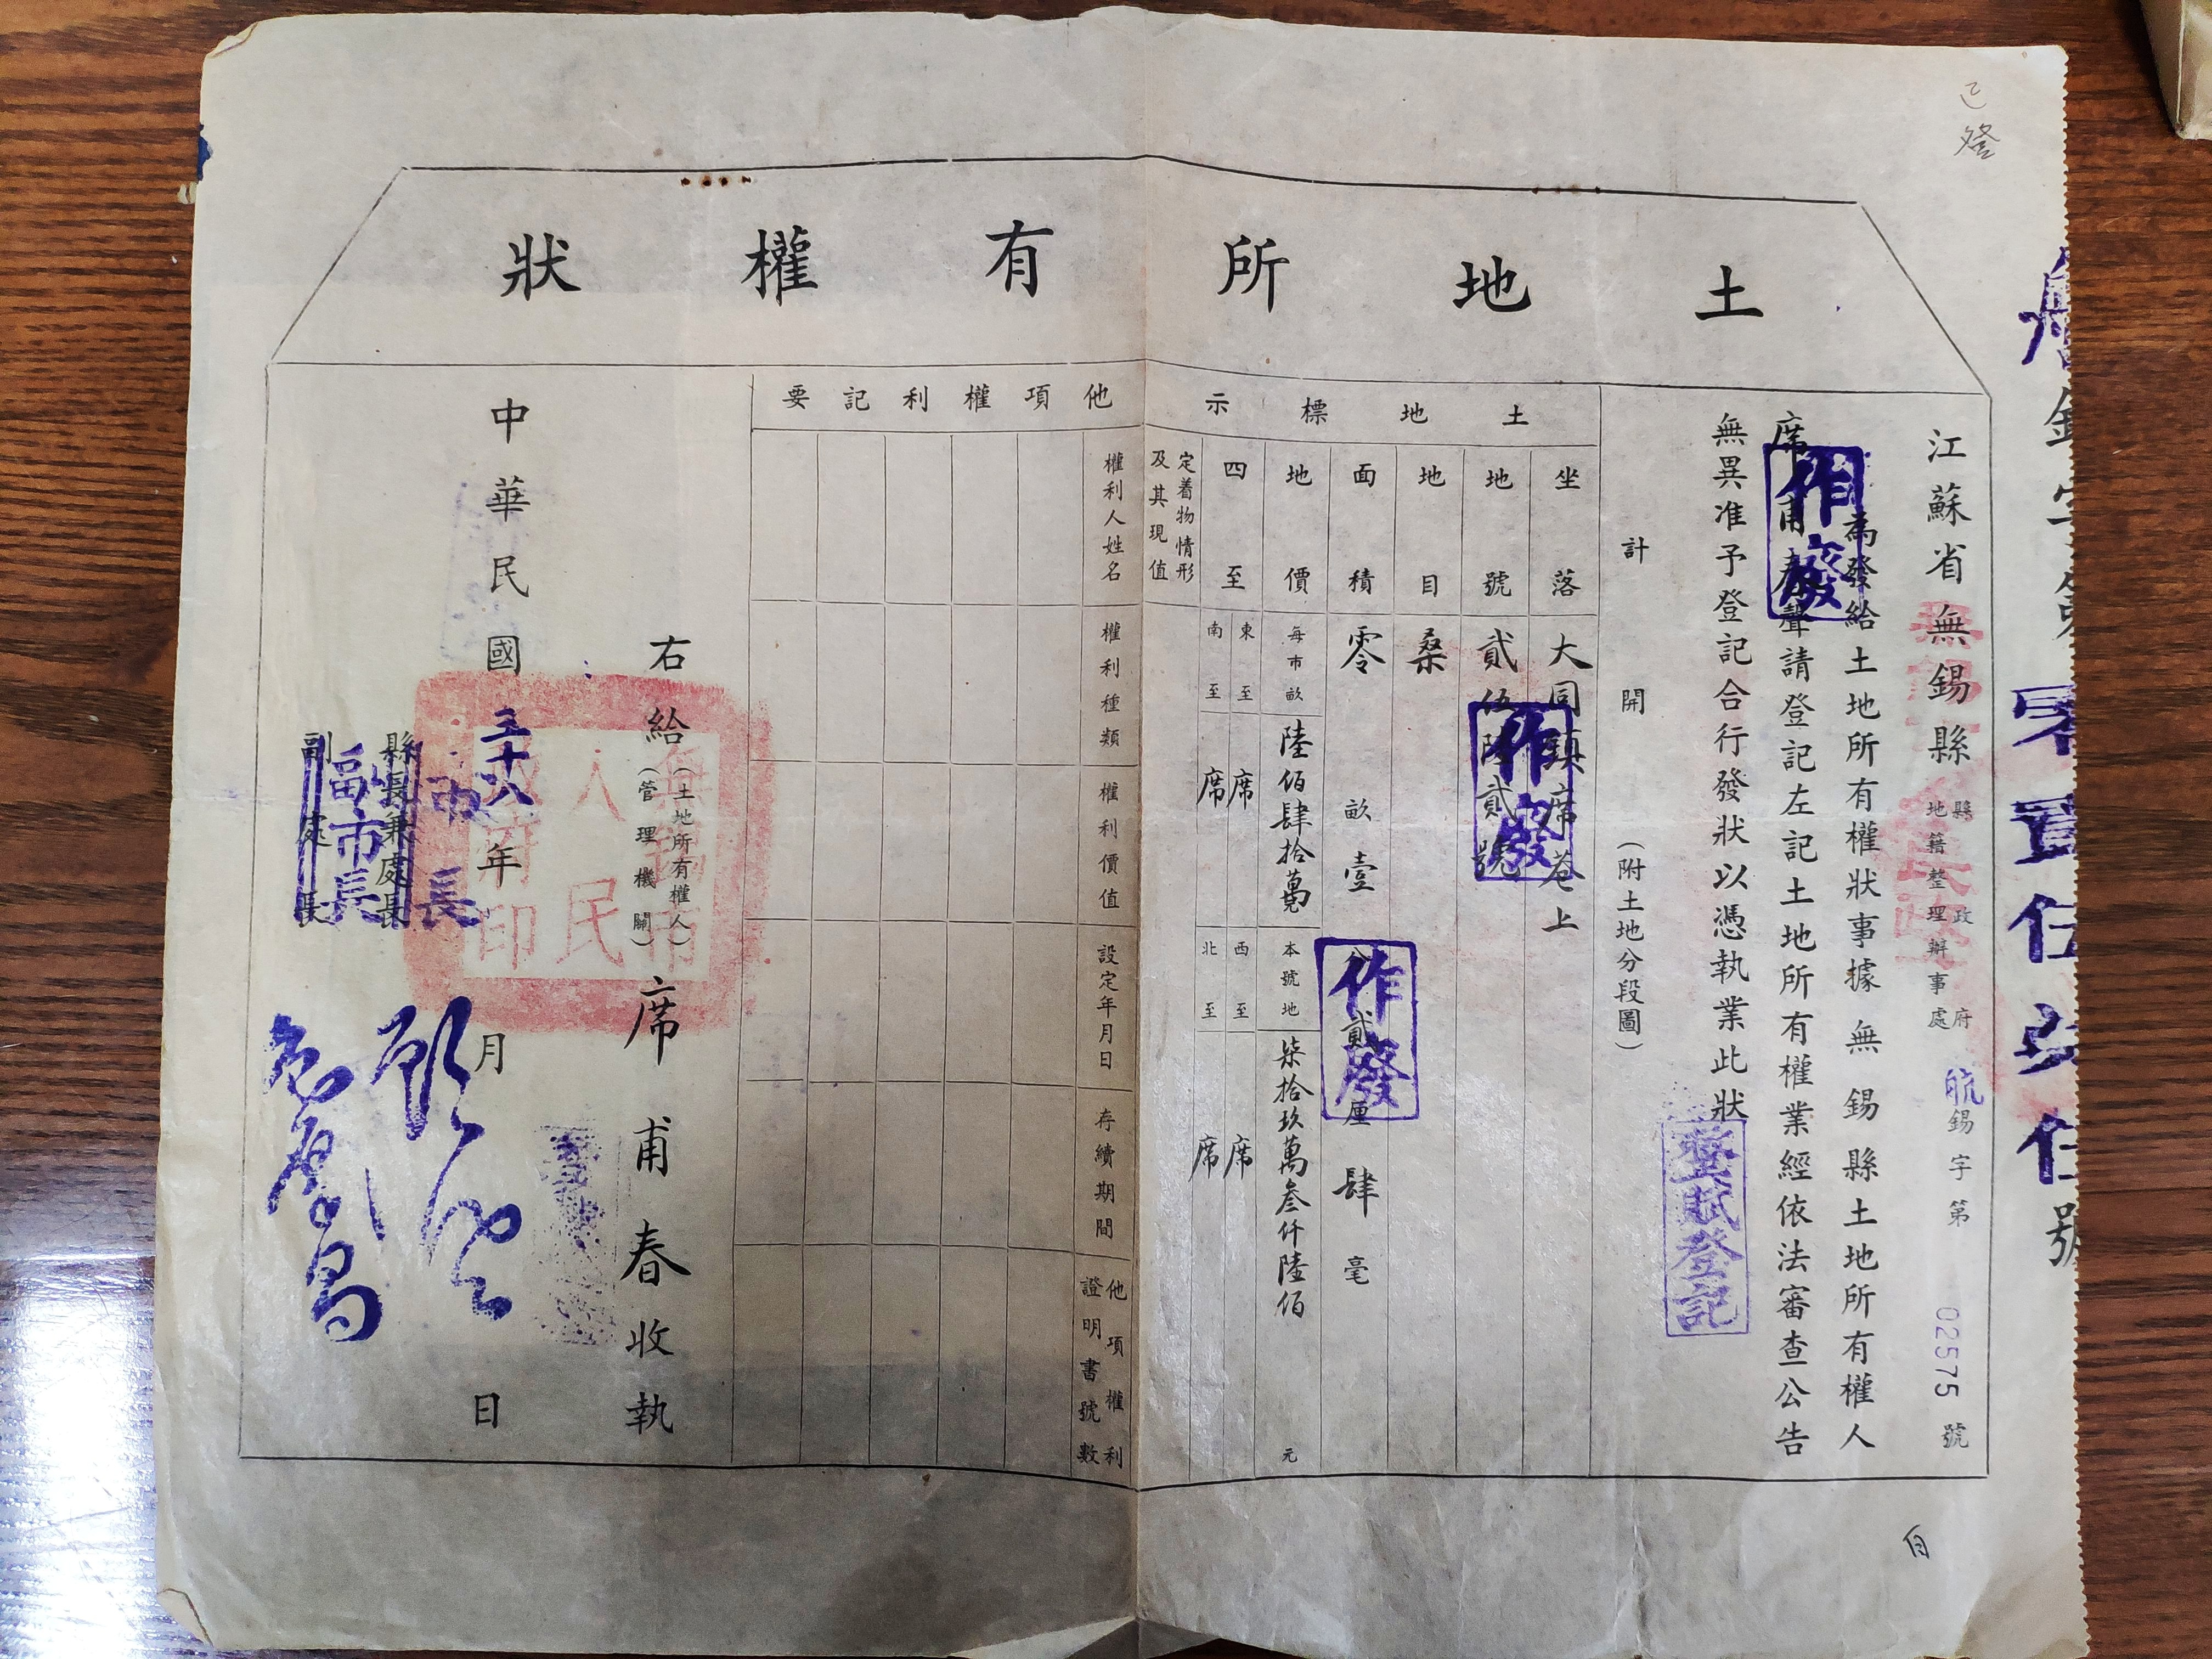 已登
土地所有權狀
零壹伍
號
江蘇省無錫縣
縣政府
地籍整理辦事處
航錫字第02575號
為發給土地所有權狀事據無錫縣土地所有權人
席甫春聲請登記左記土地所有權業經依法審查公告
無異准予登記合行發狀以憑執業此狀
作廢
整賦登記
計開(附土地分段圖)
土地標示
坐落 大同鎮席巷上
地號 貳伍陸貳號
作廢
地目 桑
面積 零畝壹分貳厘肆毫
作廢
地價 每市畝 陸佰肆拾萬 本號地 柒拾玖萬叁仟陸佰元
四至 東至 席 西至 席
南至 席 北至 席
定着物情形
及其現值
他項權利記要
權利人姓名 權利種類 權利價值 設定年月日 存續期間 他項權利
證明書號數
右給(土地所有權人)
(管理機關)
席甫春收執
無錫市人民政府印
中華民國三十八年月日
市長
縣長兼處長
副市長
副處長